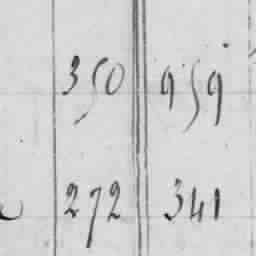 350 959
272 341